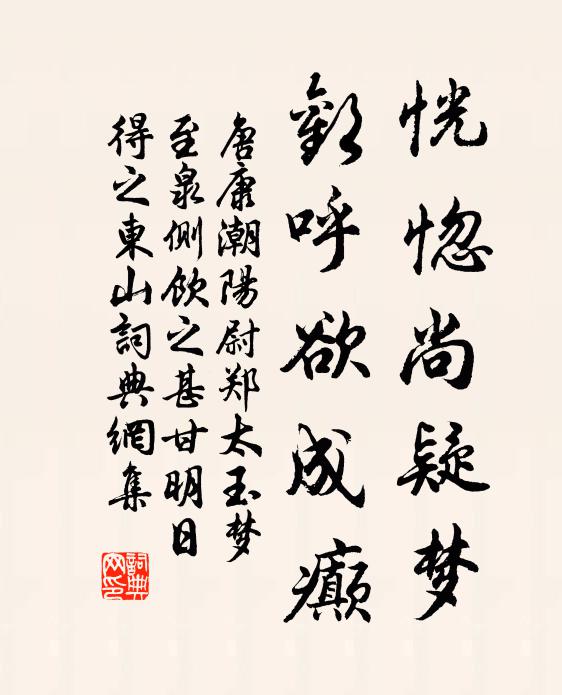 恍惚尚疑梦
歡呼欲成癲
唐康潮陽尉郑太玉梦
至泉側飲之甚甘明日
得之東山詞典網集
詞典
网印